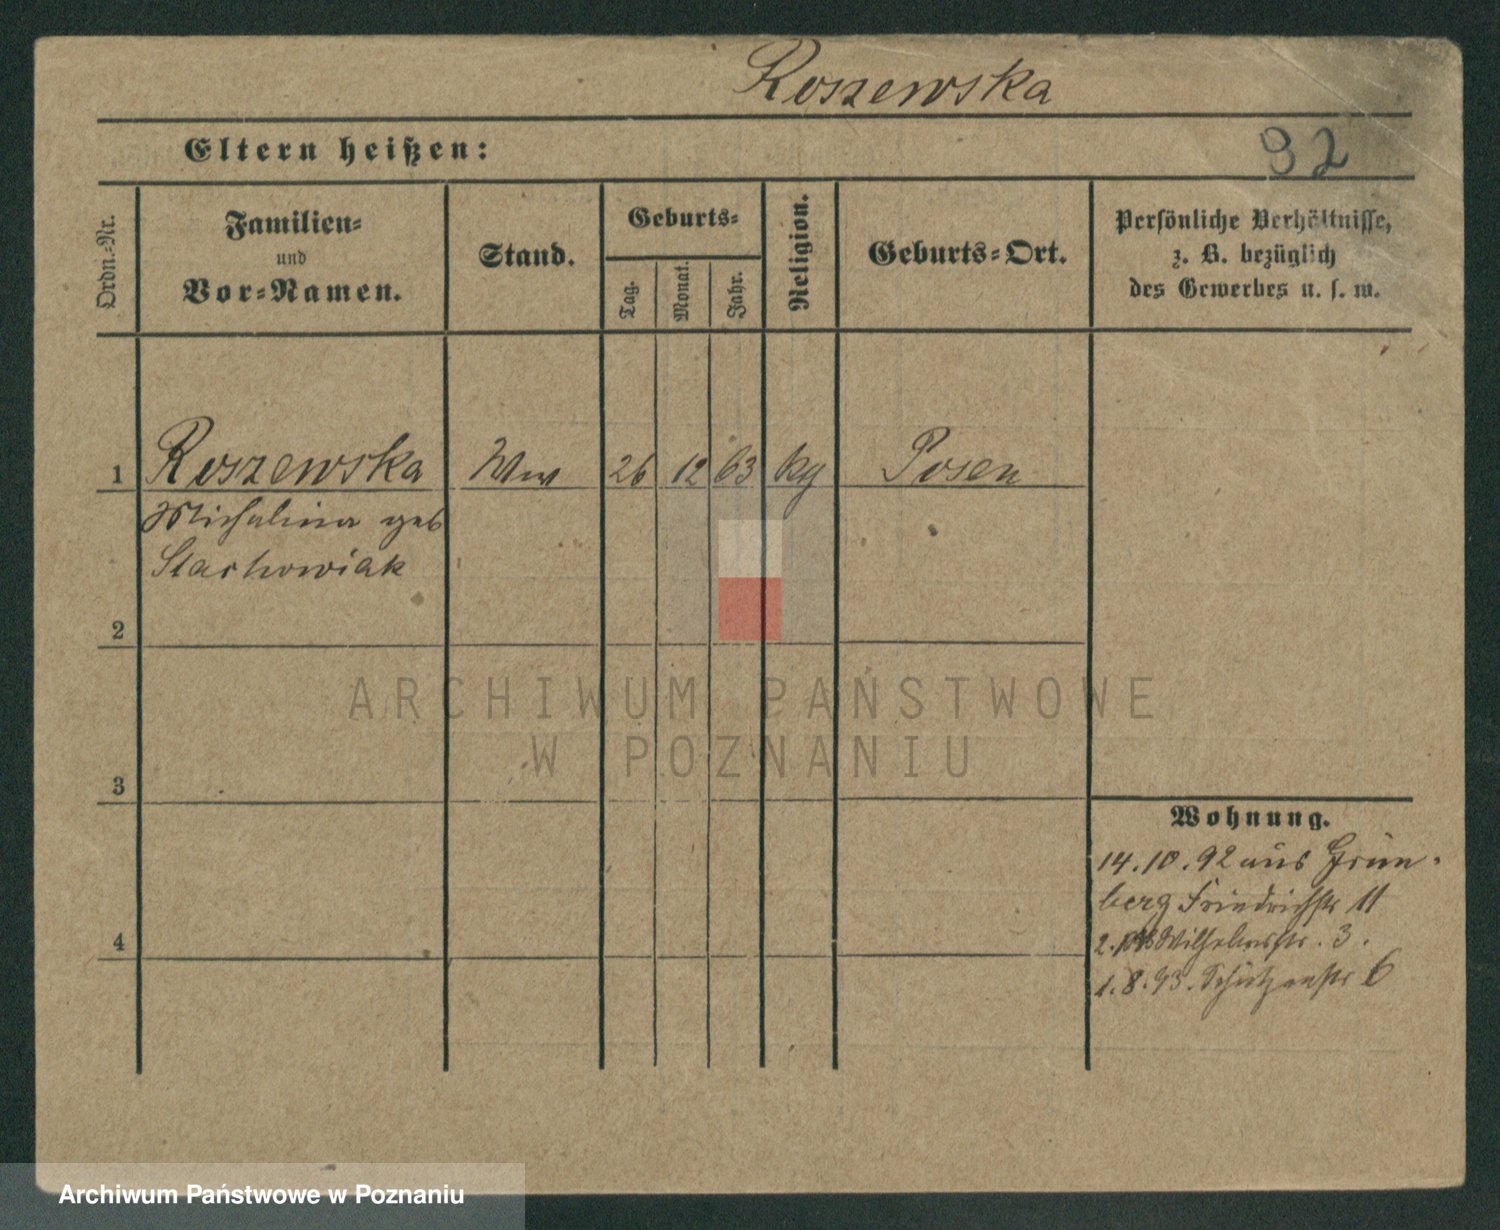 Roszewska
Eltern heißen:
92
Ordn.-Nr.
Familien=
und
Vor=Namen.
Stand.
Geburts=
Tag.
Monat.
Jahr.
Religion.
Geburts=Ort.
Persönliche Verhältnisse,
z. B. bezüglich
des Gewerbes u. s. w.
1 Roszewska Ww 26 12 63 kg Posen
Michalina geb
Stachowiak
2
3
4
Wohnung.
14.10.92 aus Grün-
berg Friedrichstr 11
2. Wilhelmstr. 3.
1.8.93. Schützenstr 6
ARCHIWUM PAŃSTWOWE
W POZNANIU
Archiwum Państwowe w Poznaniu